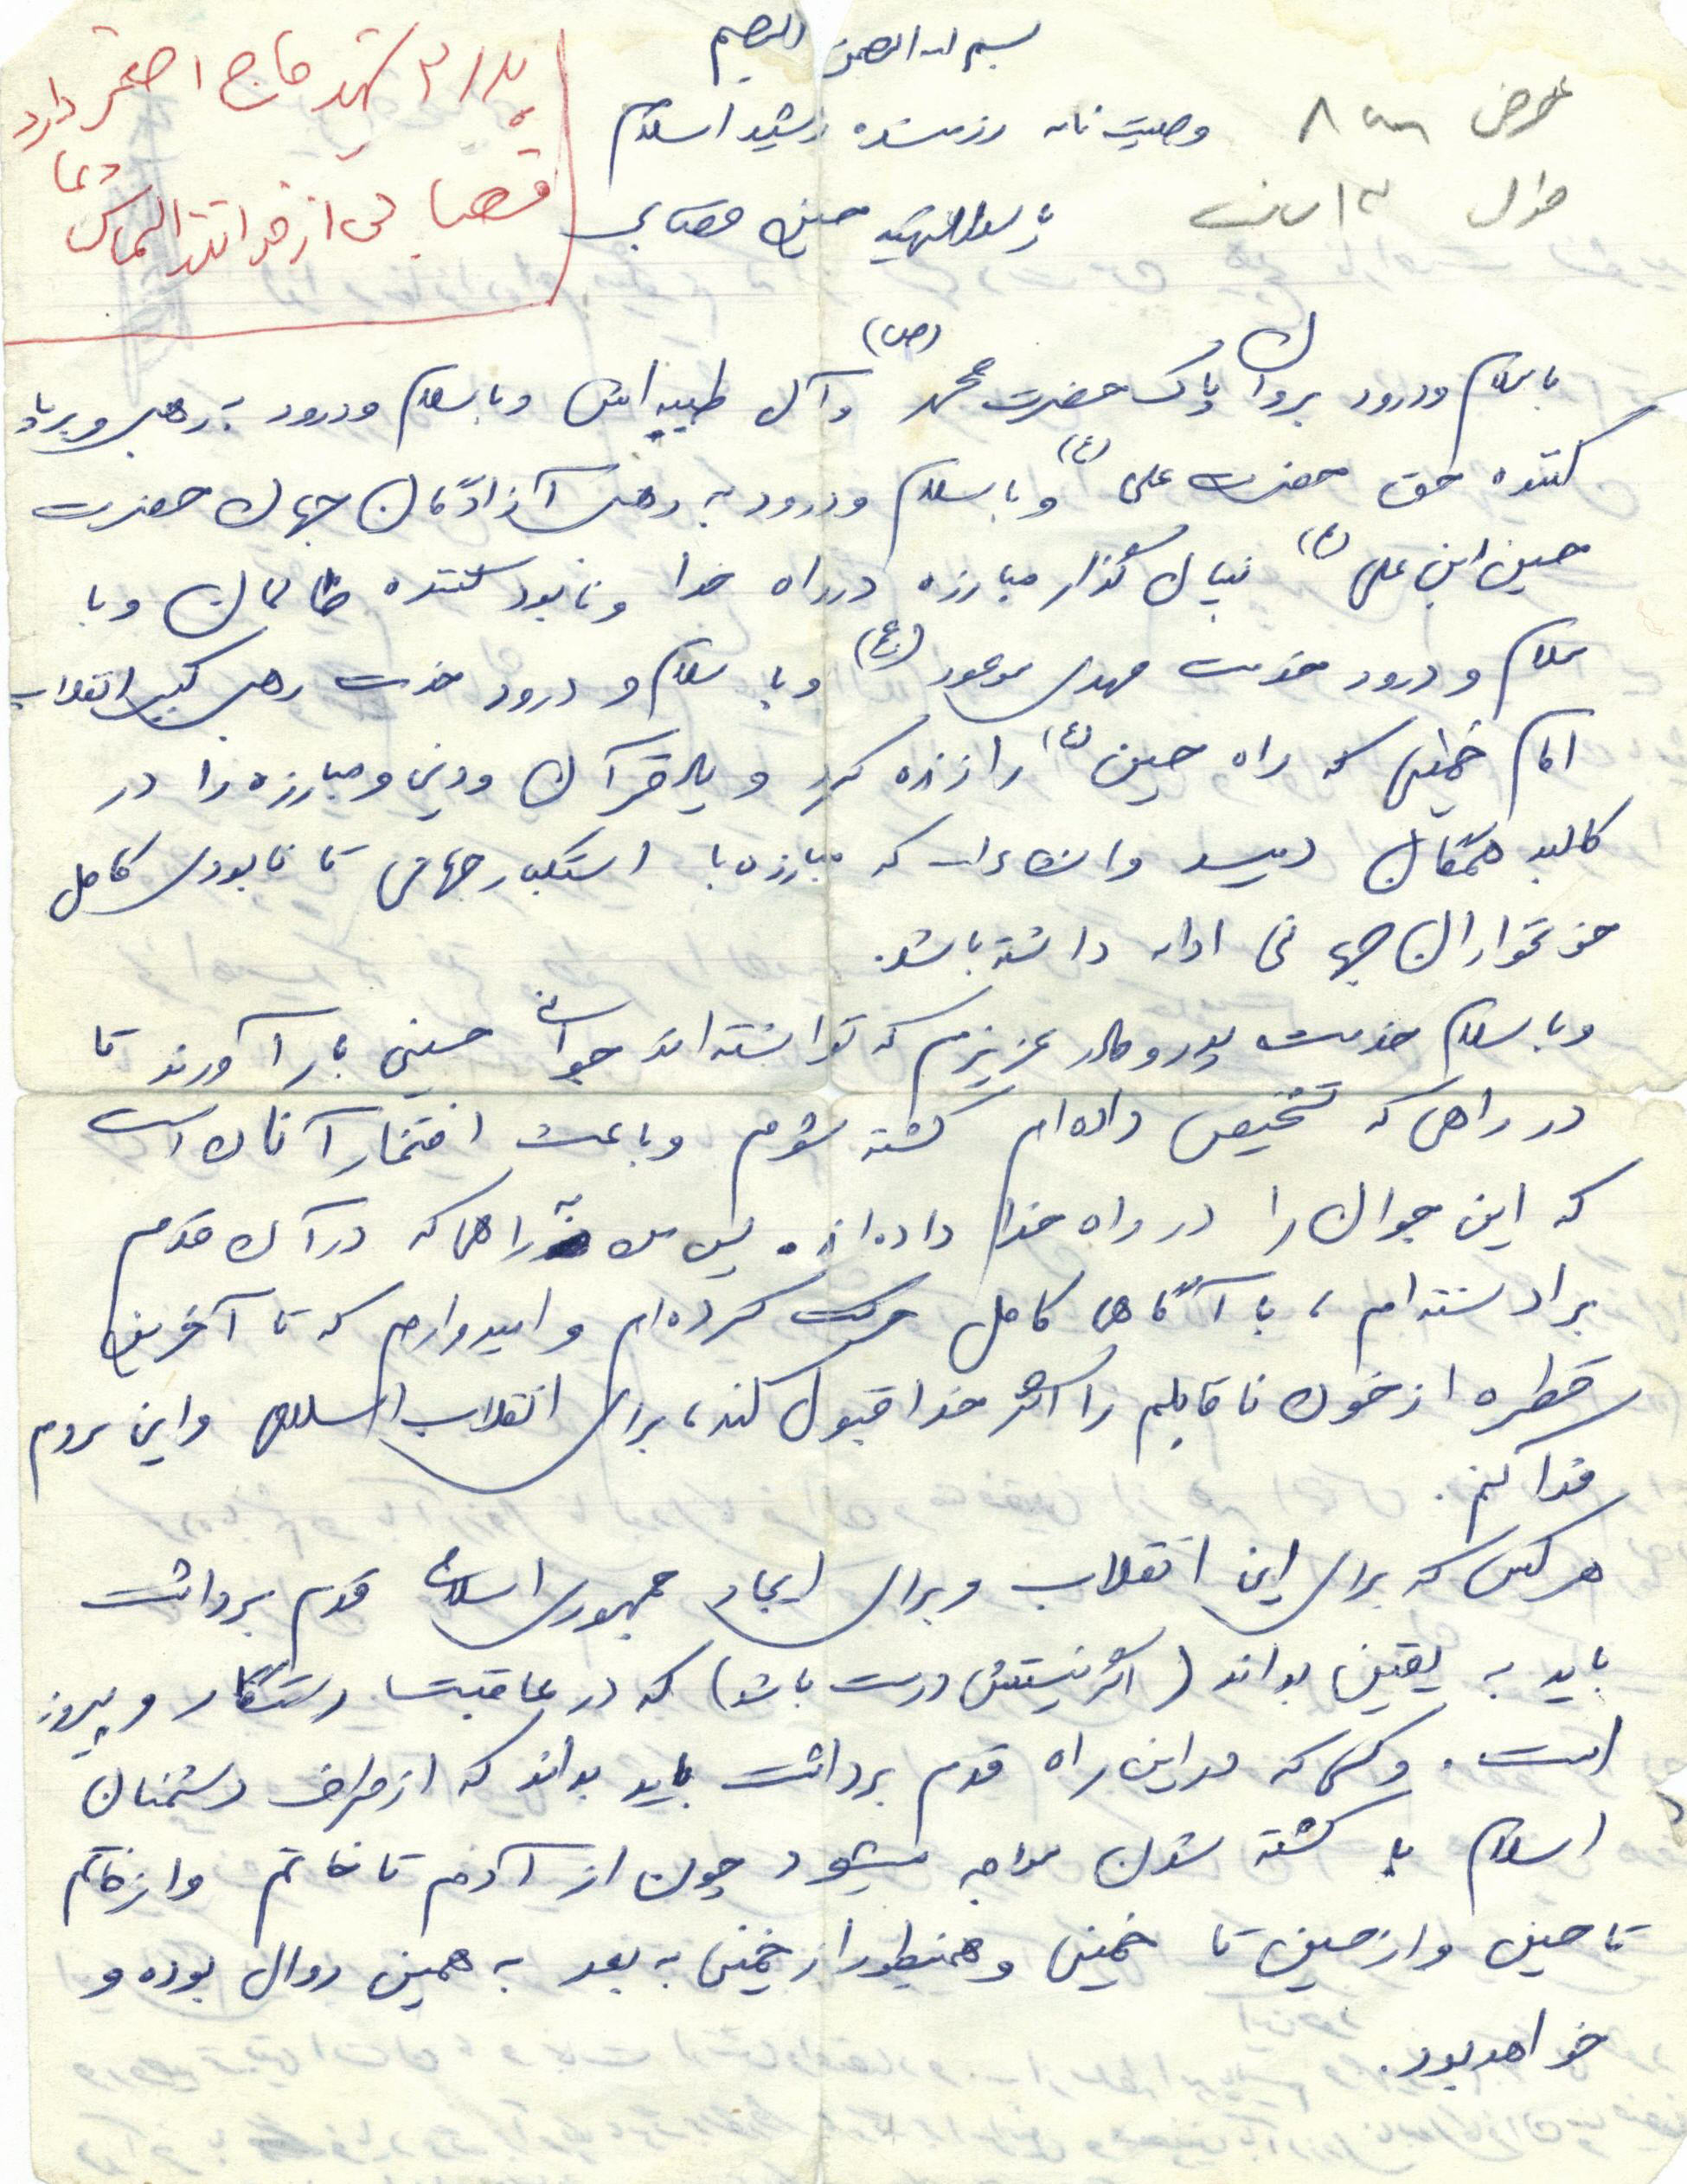 بسم الله الرحمن الرحیم
وصیت نامه رزمنده رشید اسلام
حسین قصابی
عرض ۸ سم
طول
پدر ۳ شهید حاج اصغر دارد
قصابی از خوانند التماس دعا
با سلام و درود بر روان پاک حضرت محمد (ص) و آل طیبه اش و با سلام و درود به رهبر و برپا
کننده حق حضرت علی (ع) و با سلام و درود به رهبر آزادگان جهان حضرت
حسین ابن علی (ع) بنیان گذار مبارزه در راه خدا و نابود کننده ظالمان و با
سلام و درود خدمت مهدی موعود (عج) و با سلام و درود خدمت رهبر کبیر انقلاب
امام خمینی که راه حسین (ع) را زنده کرد و یاد قرآن و دین و مبارزه را در
کالبد همگان دمید و انشاءالله که مبارزه با استکبار جهانی تا نابودی کامل
خونخواران جهانی ادامه داشته باشد.
و با سلام خدمت پدر و مادر عزیزم که توانسته اند جوانی حسینی بار آورند تا
در راهی که تشخیص داده ام کشته شوم و باعث افتخار آنان است
که این جوان را در راه خدا داده اند. پس من به راهی که در آن قدم
برداشته ام، با آگاهی کامل حرکت کرده ام و امیدوارم که تا آخرین
قطره از خون ناقابلم را اگر خدا قبول کند، برای انقلاب اسلامی و این مردم
فدا کنم.
هر کس که برای این انقلاب و برای ایجاد جمهوری اسلامی قدم برداشت
باید به یقین بداند (اگر نیتش درست باشد) که در عاقبت رستگار و پیروز
است. و کسی که در این راه قدم برداشت باید بداند که از طرف دشمنان
اسلام با کشته شدن مواجه میشود چون از آدم تا خاتم و از خاتم
تا حسین و از حسین تا خمینی و همینطور از خمینی به بعد به همین روال بوده و
خواهد بود.